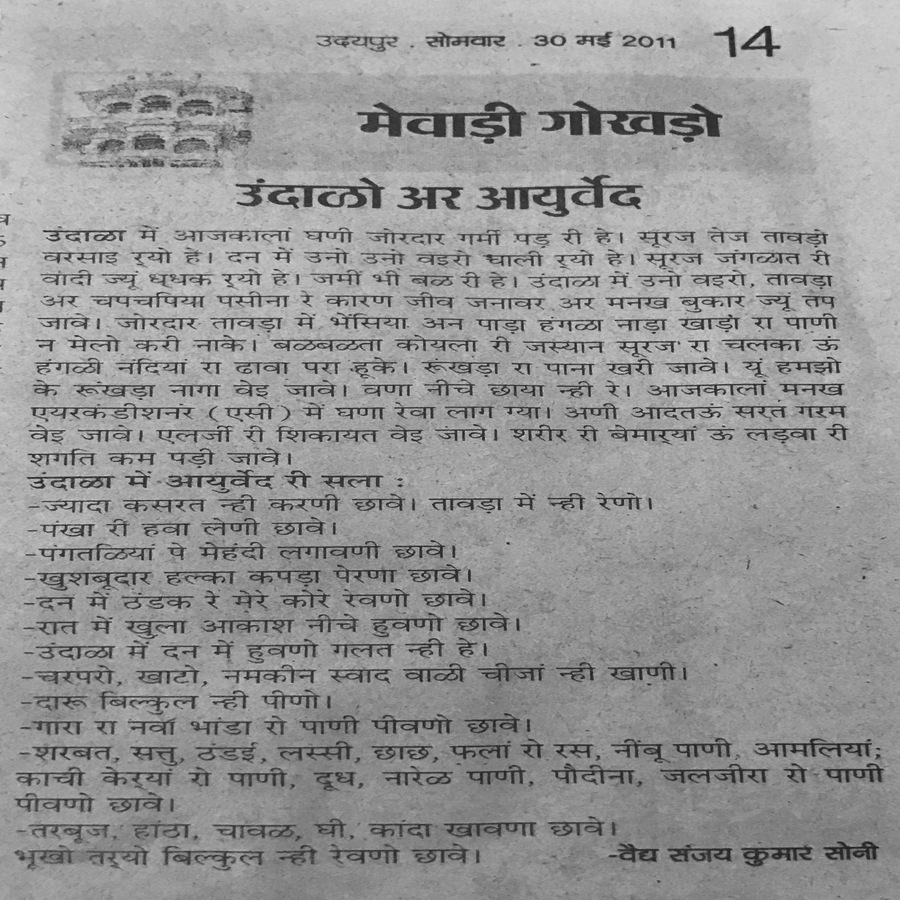 उदयपुर . सोमवार . 30 मई 2011 14
मेवाड़ी गोखड़ो
उंदाळो अर आयुर्वेद
उंदाळा में आजकालां घणी जोरदार गर्मी पड़ री हे। सूरज तेज तावड़ो
वरसाइ र्‌यो हे। दन में उनो उनो वइरो चाली र्‌यो हे। सूरज जंगळात री
वादी ज्यूं धधक र्‌यो हे। जमीं भी बळ री हे। उंदाळा में उनो वइरो, तावड़ा
अर चपचपिया पसीना रे कारण जीव जनावर अर मनख बुकार ज्यूं तप
जावे। जोरदार तावड़ा में भेंसिया अन पाड़ा हंगळा नाड़ा खाड़ा रा पाणी
न मेलो करी नाके। बळबळता कोयला री जस्यान सूरज रा चलका ऊं
हंगळी नंदियां रा ढावा परा हूके। रूंखड़ा रा पाना खरी जावे। यूं हमझो
के रूंखड़ा नागा वेइ जावे। वणा नीचे छाया न्ही रे। आजकालां मनख
एयरकंडीशनर (एसी) में घणा रेवा लाग ग्या। अणी आदतऊं सरत गरम
वेइ जावे। एलर्जी री शिकायत वेइ जावे। शरीर री बेमार्‌यां ऊं लड़वा री
शगति कम पड़ी जावे।
उंदाळा में आयुर्वेद री सला :
-ज्यादा कसरत न्ही करणी छावे। तावड़ा में न्ही रेणो।
-पंखा री हवा लेणी छावे।
-पगतळियां पे मेहंदी लगावणी छावे।
-खुशबूदार हल्का कपड़ा पेरणा छावे।
-दन में ठंडक रे मेरे कोरे रेवणो छावे।
-रात में खुला आकाश नीचे हुवणो छावे।
-उंदाळा में दन में हुवणो गलत न्ही हे।
-चरपरो, खाटो, नमकीन स्वाद वाळी चीजां न्ही खाणी।
-दारू बिल्कुल न्ही पीणो।
-गारा रा नवा भांडा रो पाणी पीवणो छावे।
-शरबत, सत्तु, ठंडई, लस्सी, छाछ, फलां रो रस, नींबू पाणी, आमलियां,
काची केर्‌यां रो पाणी, दूध, नारेळ पाणी, पौदीना, जलजीरा रो पाणी
पीवणो छावे।
-तरबूज, हांठा, चावळ, घी, कांदा खावणा छावे।
भूखो तर्‌यो बिल्कुल न्ही रेवणो छावे। -वैद्य संजय कुमार सोनी